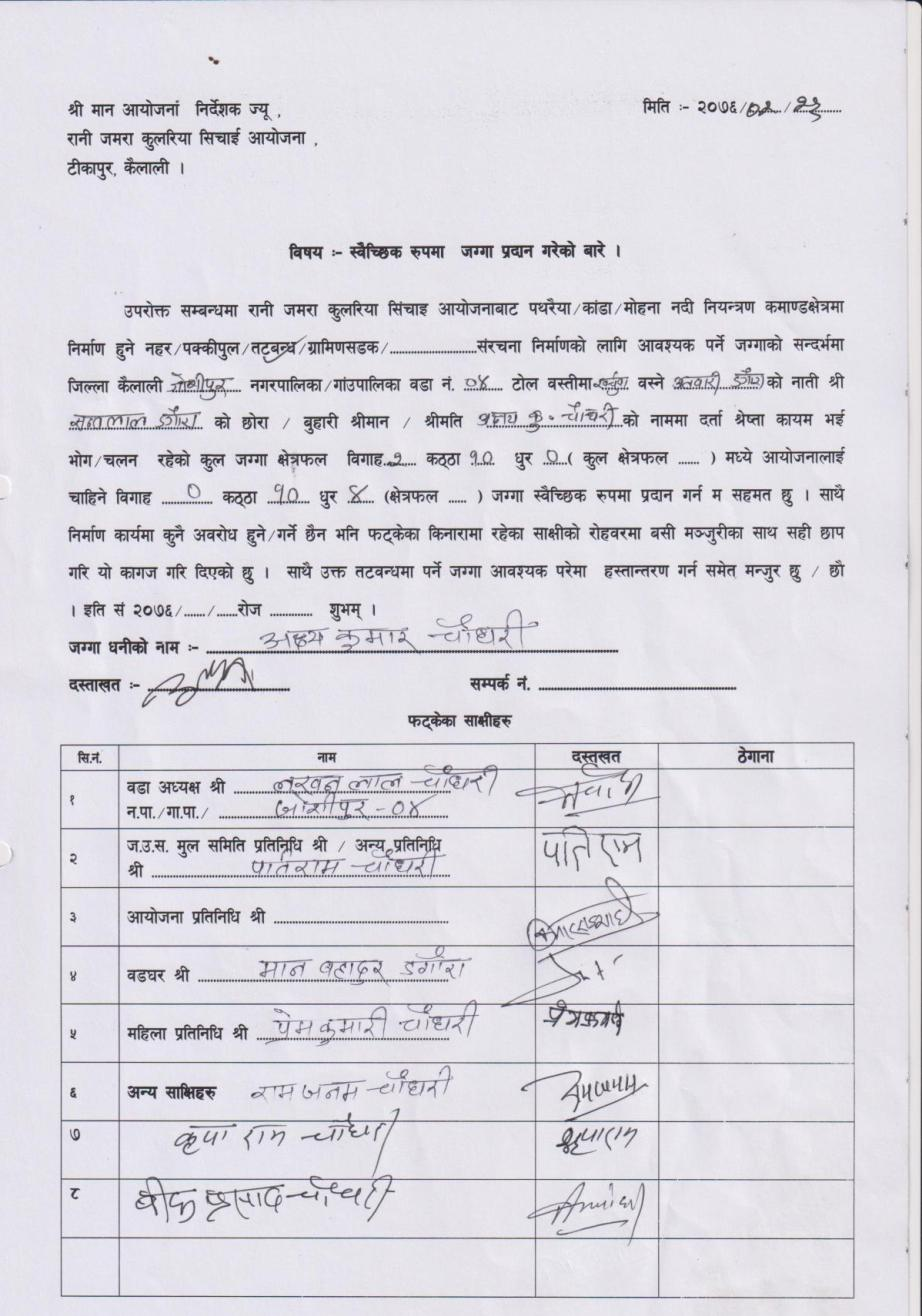 श्री मान आयोजनां निर्देशक ज्यू ,
मिति :- २०७६/०२/२३
रानी जमरा कुलरिया सिचाई आयोजना ,
टीकापुर, कैलाली ।
विषय :- स्वैच्छिक रुपमा जग्गा प्रदान गरेको बारे ।
उपरोक्त सम्बन्धमा रानी जमरा कुलरिया सिंचाइ आयोजनाबाट पथरैया/कांडा/मोहना नदी नियन्त्रण कमाण्डक्षेत्रमा
निर्माण हुने नहर/पक्कीपुल/तटबन्ध/ग्रामिणसडक/........................संरचना निर्माणको लागि आवश्यक पर्ने जग्गाको सन्दर्भमा
जिल्ला कैलाली जोशीपुर नगरपालिका/गांउपालिका वडा नं. ०४ टोल वस्तीमा वस्ने डगौरा को नाती श्री
सन्तलाल डगौरा को छोरा / बुहारी श्रीमान / श्रीमति अक्षय कु. चौधरी को नाममा दर्ता श्रेष्ता कायम भई
भोग/चलन रहेको कुल जग्गा क्षेत्रफल विगाह २ कठ्ठा १० धुर ० ( कुल क्षेत्रफल ...... ) मध्ये आयोजनालाई
चाहिने विगाह ० कठ्ठा १० धुर ४ (क्षेत्रफल ..... ) जग्गा स्वैच्छिक रुपमा प्रदान गर्न म सहमत छु । साथै
निर्माण कार्यमा कुनै अवरोध हुने/गर्ने छैन भनि फट्केका किनारामा रहेका साक्षीको रोहवरमा बसी मञ्जुरीका साथ सही छाप
गरि यो कागज गरि दिएको छु । साथै उक्त तटवन्धमा पर्ने जग्गा आवश्यक परेमा हस्तान्तरण गर्न समेत मन्जुर छु / छौ
। इति सं २०७६/....../......रोज ............ शुभम् ।
जग्गा धनीको नाम :- अक्षय कुमार चौधरी
दस्ताखत :- ........................ सम्पर्क नं. ........................
फट्केका साक्षीहरु
सि.नं. नाम दस्तखत ठेगाना
१ वडा अध्यक्ष श्री लखन लाल चौधरी
न.पा./गा.पा./ जोशीपुर - ०४
२ ज.उ.स. मुल समिति प्रतिनिधि श्री / अन्य प्रतिनिधि
श्री पातिराम चौधरी पातिराम
३ आयोजना प्रतिनिधि श्री ........................
४ वडघर श्री मान बहादुर डगौरा
५ महिला प्रतिनिधि श्री प्रेमकुमारी चौधरी
६ अन्य साक्षिहरु राम जनम चौधरी
७ कृपा राम चौधरी कृपाराम
८ प्रसाद चौधरी